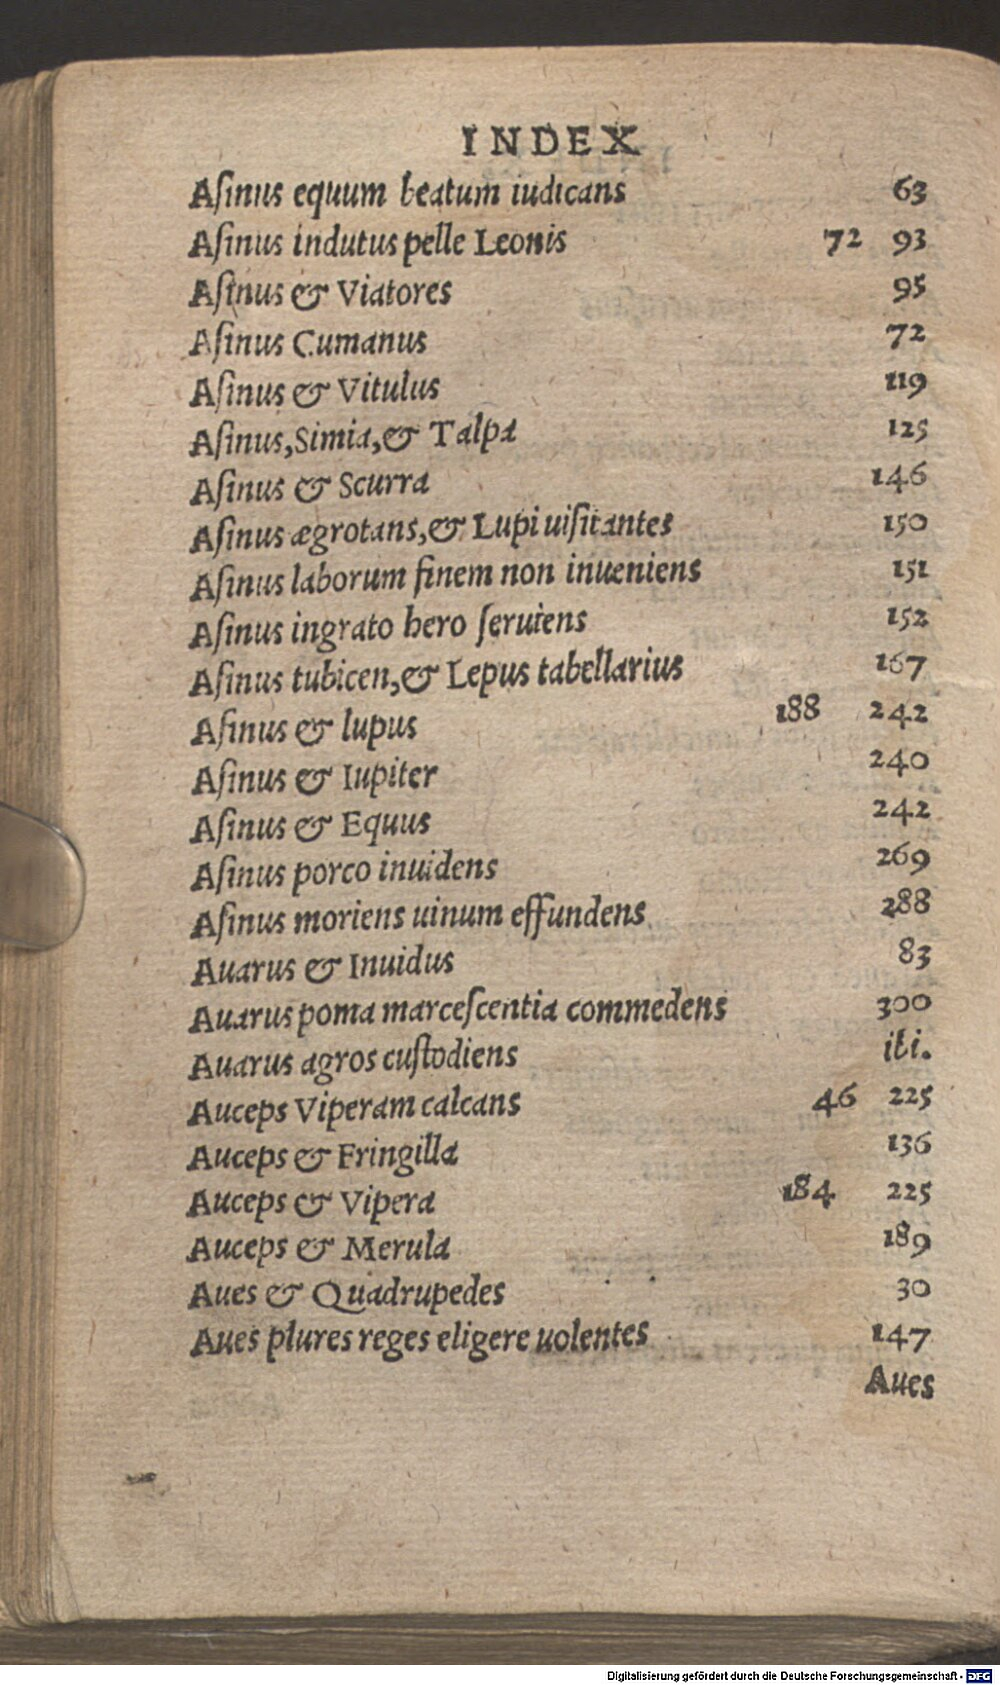 INDEX
Aſinus equum beatum iudicans 63
Aſinus indutus pelle Leonis 72 93
Aſinus & Viatores 95
Aſinus Cumanus 72
Aſinus & Vitulus 119
Aſinus, Simia, & Talpa 125
Aſinus & Scurra 146
Aſinus ægrotans, & Lupi uiſitantes 150
Aſinus laborum finem non inueniens 151
Aſinus ingrato hero ſeruiens 152
Aſinus tubicen, & Lepus tabellarius 167
Aſinus & lupus 188 242
Aſinus & Iupiter 240
Aſinus & Equus 242
Aſinus porco inuidens 269
Aſinus moriens uinum effundens 288
Auarus & Inuidus 83
Auarus poma marceſcentia commedens 300
Auarus agros cuſtodiens ibi.
Auceps Viperam calcans 46 225
Auceps & Fringilla 136
Auceps & Vipera 184 225
Auceps & Merula 189
Aues & Quadrupedes 30
Aues plures reges eligere uolentes 147
Aues
Digitalisierung gefördert durch die Deutsche Forschungsgemeinschaft - DFG